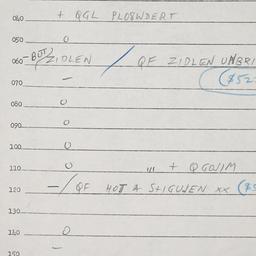 040 + QGL PLOSWDERT
050 O
060 -BOT) ZIDLEN / QF ZIDLEN UMBRI
($52
070 -
080 O
090 O
100 O
110 O ,,, + QGWIM
120 -/ QF HOT A STIGUWEN xx ($5
130
140 O
150 -